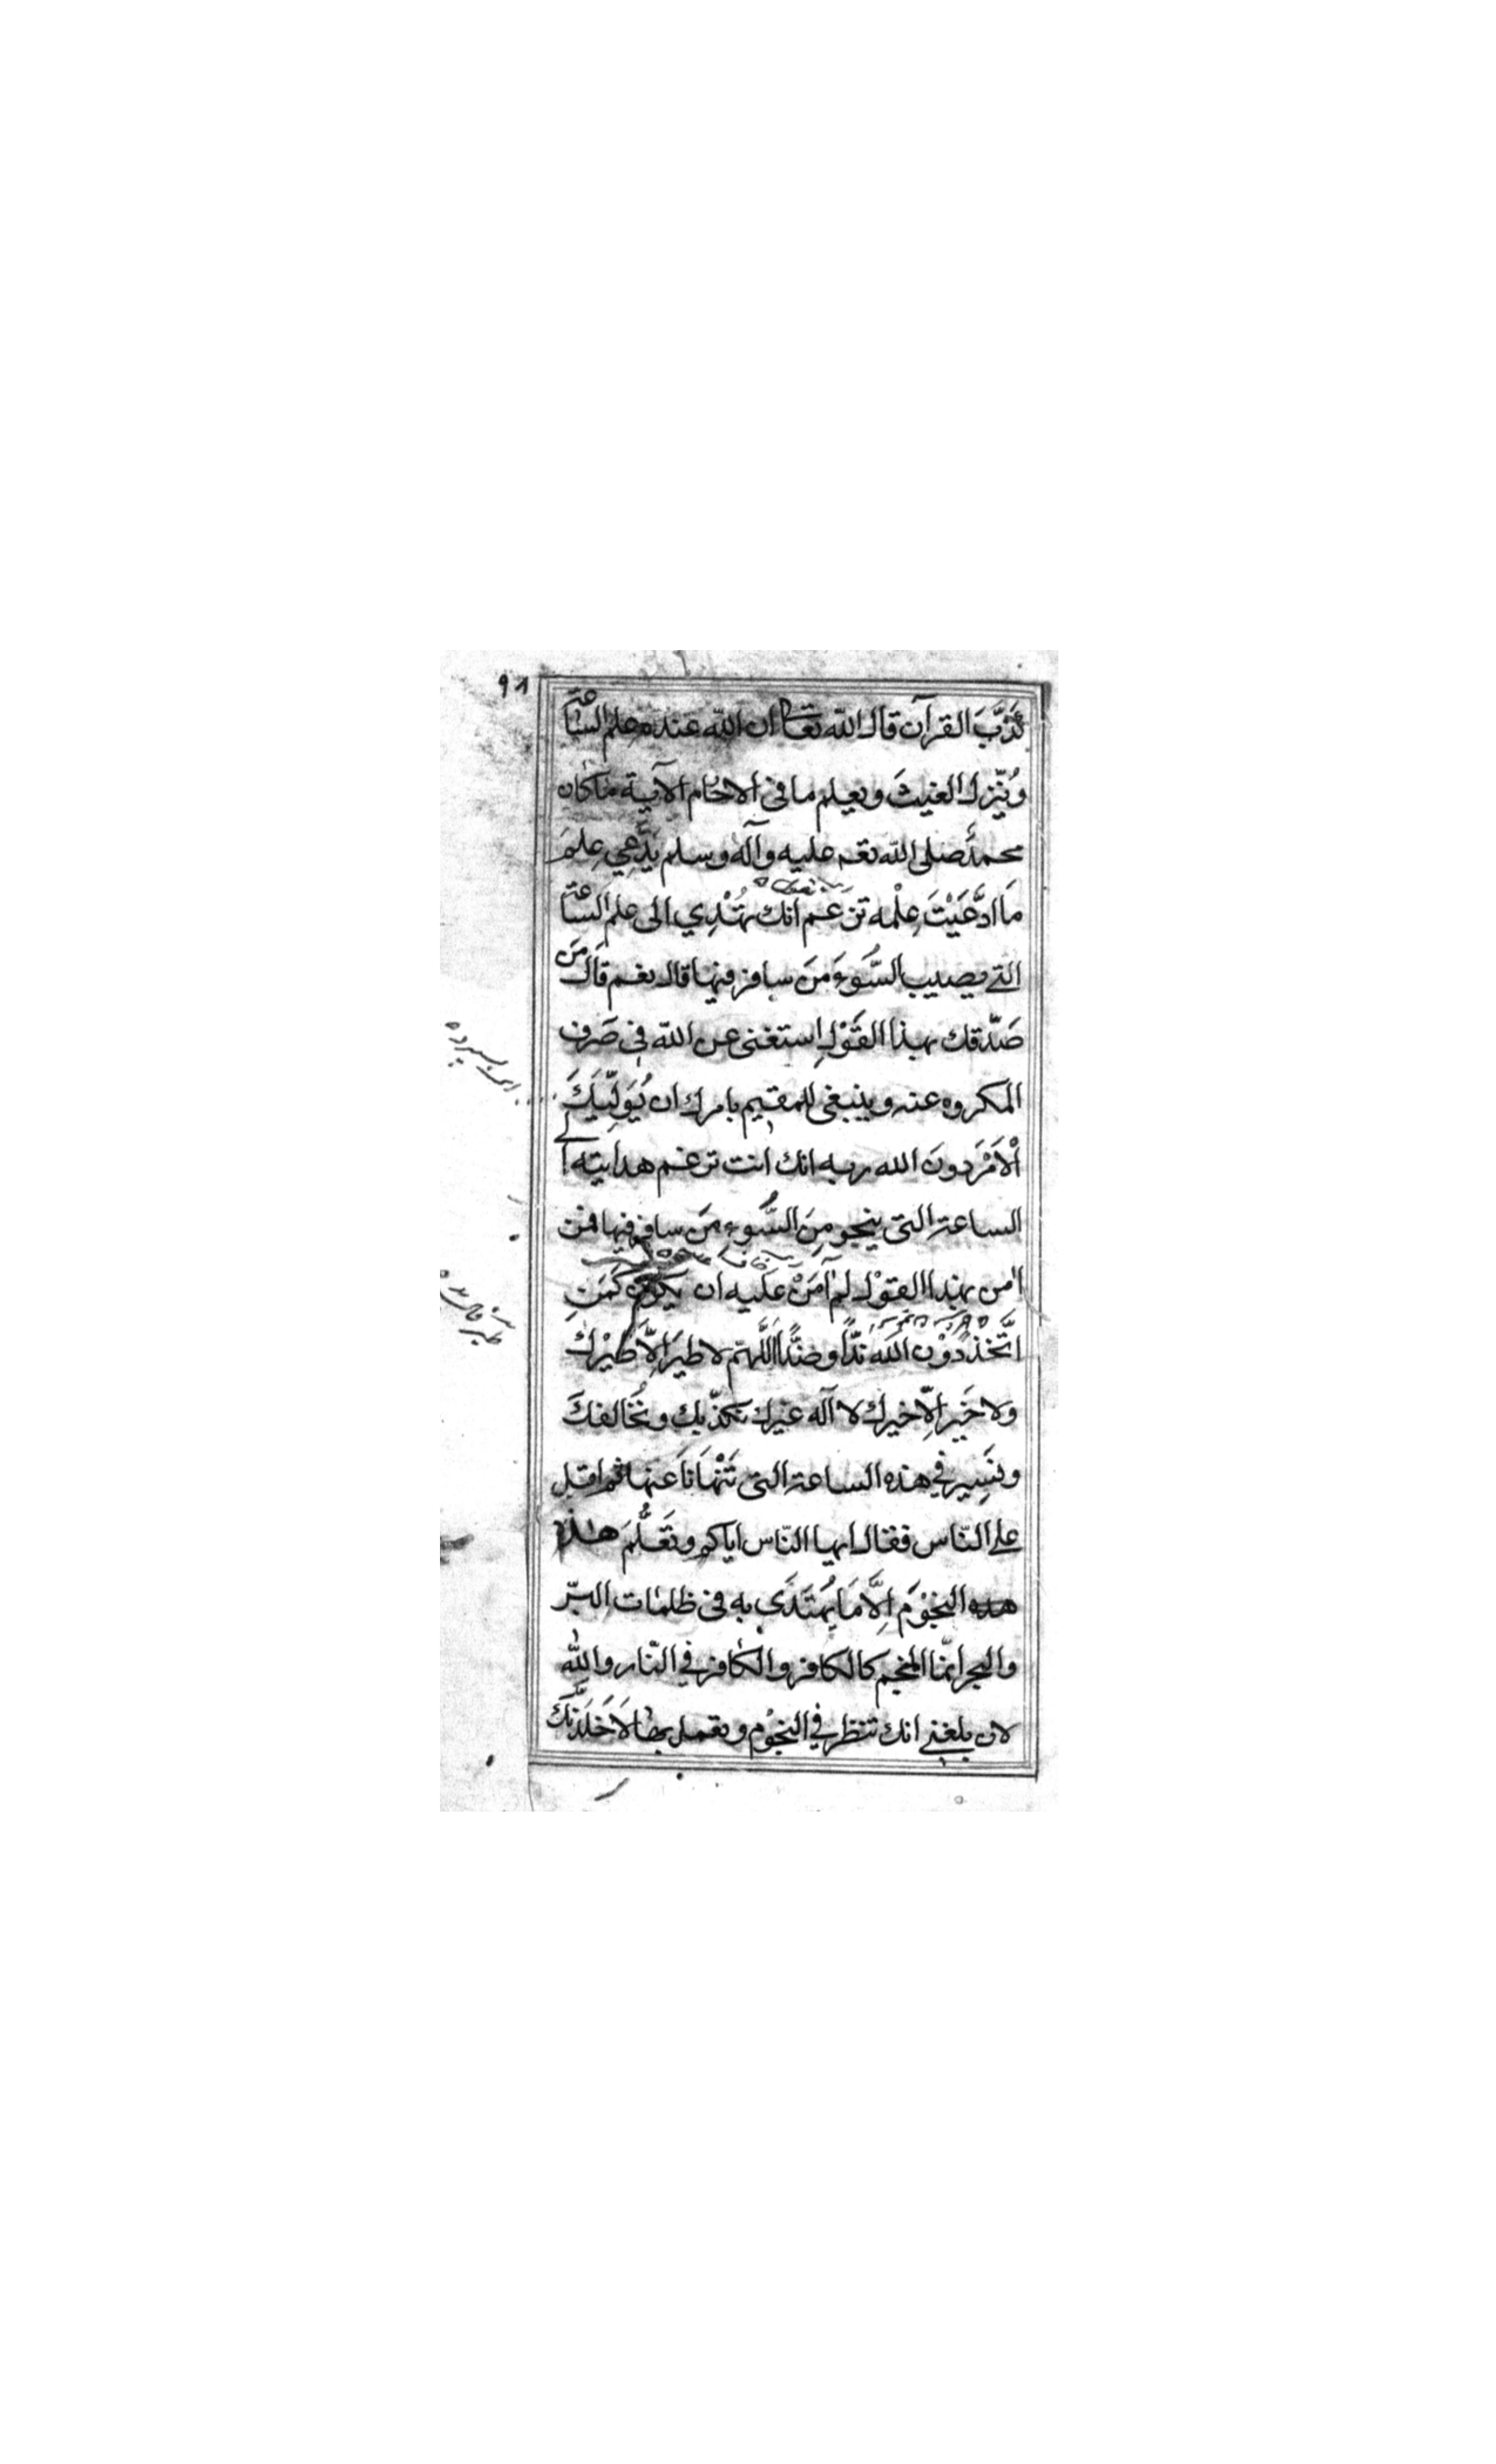 ٩٨
كَذَّبَ القرآن قال الله تعالى ان الله عنده علم السّاعة
ويُنّزل الغيثَ ويعلم ما فى الارحام الآية ما كان
محمد صلى الله تعـ عليه وآله وسلم يَدَّعِي عِلمَ
مَا ادَّعَيْتَ عِلْمه تزعم انك تُهْدِي الى علم السّاعة
التى يصيب السُّوءَ مَن سافر فيها قال نعم قال مَن
صَدّقك بهذا القَوْل اِستغنى عن الله فى صَرف
المكروه عنه وينبغى للمقيم بامرك ان يُوَلِّيَكَ
اْلاَمْرَ دونَ الله ربه انك انت تزعم هدايته الى
الساعة التى ينجو مِنَ السُّوء مَن سافر فيها فمن
اٰمن بهذا القوْل لم آمَنْ عَليه ان يكون كَمَنِ
اتَّخذ دُوْن الله نِدًّا وضِدًّا اللَّهمّ لا طيرَ اِلاّ طَيْرك
ولا خَيرَ اِلاّ خيرك لا آله غيرك نكذّبك ونُخالفكَ
ونَسِير في هذه الساعة التى تَنْهَانَا عنها ثم اقبل
على النّاس فقال ايها النّاس اياكم وتَعَلُّمَ هٰذا
هذه النجوْم اِلَّا مَا يُهتَدَى به فى ظلمات البرّ
والبحر انّما المنجم كالكافر والكافر في النّار والله
لان بلغنى انك تنظر في النجوْم وتعمل بها لاَخَلِّدَنَّكَ